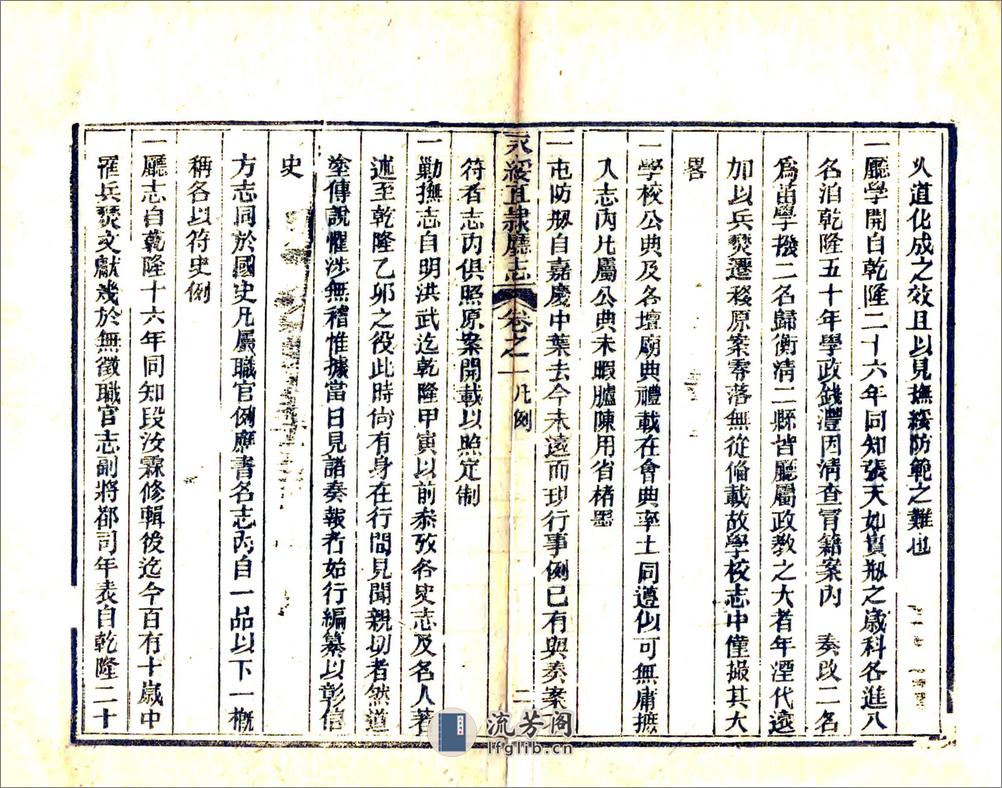 久道化成之效且以見撫綏防範之難也
一廳學開自乾隆二十六年同知張天如實剏之歲科各進八
名洎乾隆五十年學政錢灃因清查冐籍案內　奏改二名
爲苗學撥二名歸衡清二縣皆廳屬政教之大者年湮代遠
加以兵燹遷移原案零落無從備載故學校志中僅撮其大
畧
一學校公典及各壇廟典禮載在會典率土同遵似可無庸摭
入志內凡屬公典未暇臚陳用省楮墨
一屯防剏自嘉慶中葉去今未遠而現行事例已有與奏案
永綏直隸廳志　卷之一　凡例　二
符者志內俱照原案開載以照定制
一勦撫志自明洪武迄乾隆甲寅以前叅攷各史志及名人著
述至乾隆乙卯之役此時尙有身在行間見聞親切者然道
塗傳說懼涉無稽惟據當日見諸奏報者始行編纂以彰信
史
方志同於國史凡屬職官例應書名志內自一品以下一槪
稱名以符史例
一廳志自乾隆十六年同知段汝霖修輯後迄今百有十歲中
罹兵燹文獻幾於無徵職官志副將都司年表自乾隆二十
流芳阁
lfglib.cn